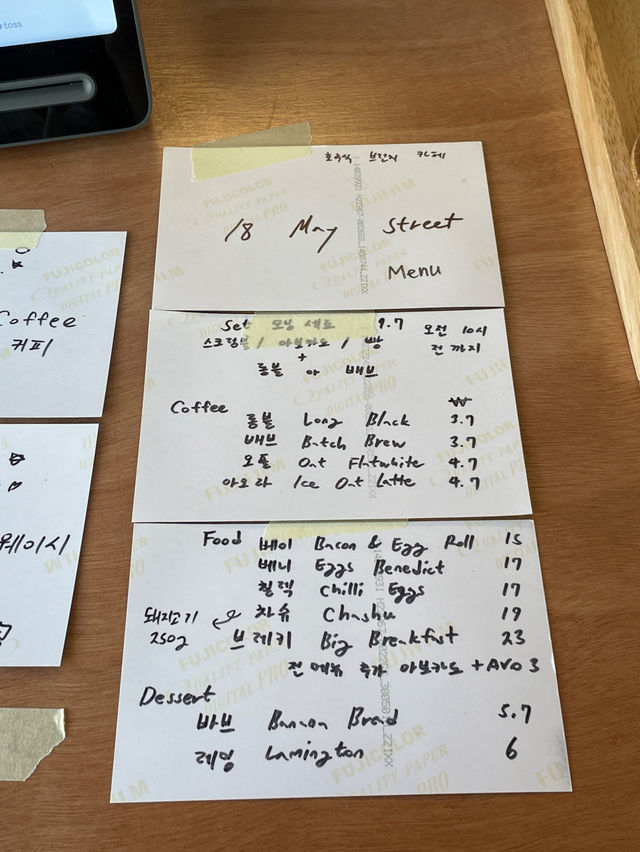 toss
호주식 브런치 카페
18 May Street
Menu
Set 모닝 세트 9.7 오전 10시
스크램블 / 아보카도 / 빵 전까지
+
롱블 or 배브
Coffee ₩
롱블 Long Black 3.7
배브 Batch Brew 3.7
오플 Oat Flatwhite 4.7
아오라 Ice Oat Latte 4.7
Food 베이 Bacon & Egg Roll 15
베니 Eggs Benedict 17
칠엑 Chilli Eggs 17
돼지고기 차슈 Chashu 19
250g 브레키 Big Breakfast 23
전 메뉴 추가 아보카도 +Avo 3
Dessert
바브 Banana Bread 5.7
레밍 Lamington 6
Coffee
커피
FUJICOLOR
QUALITY PAPER
DIGITAL PRO
FUJIFILM